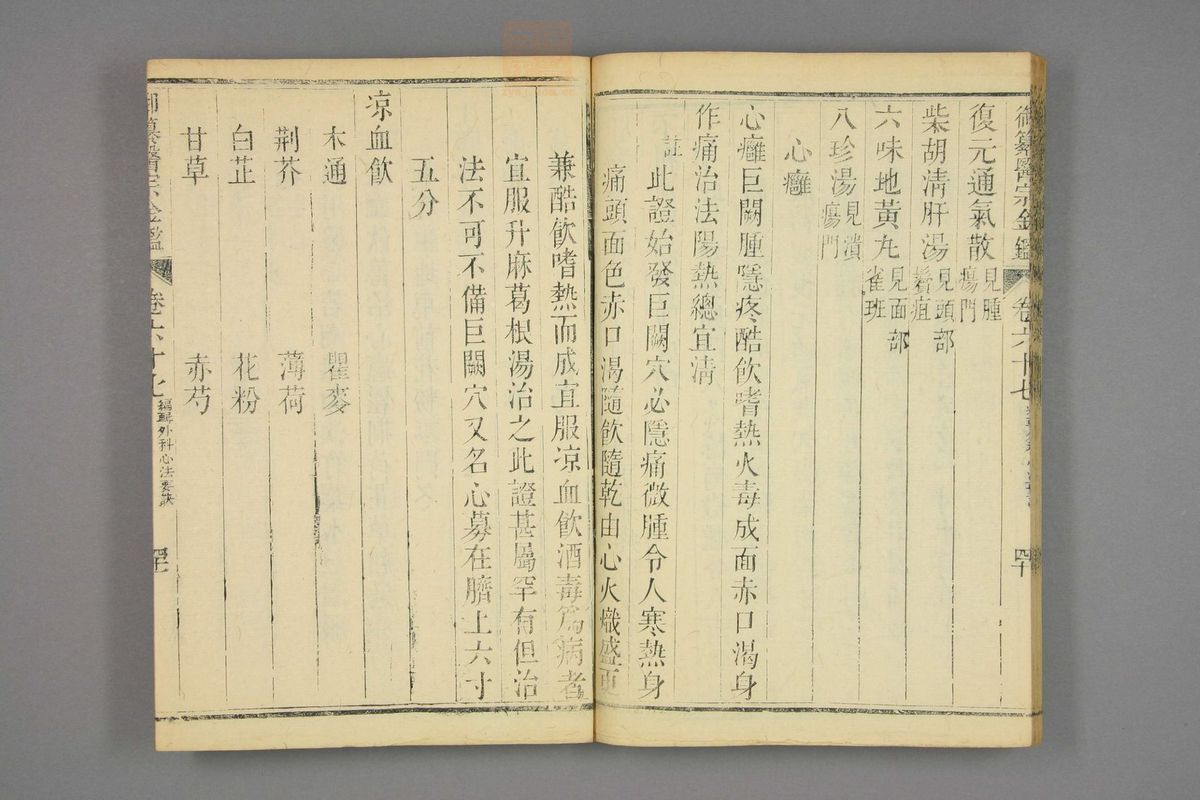 御纂醫宗金鑑 卷六十七 四十
復元通氣散 見腫瘍門
柴胡清肝湯 見頭部鬢疽
六味地黄丸 見面部雀斑
八珍湯 見潰瘍門
心癰
心癰巨闕腫隱疼酷飲嗜熱火毒成面赤口渴身
作痛治法陽熱總宜清
註 此證始發巨闕穴必隱痛微腫令人寒熱身
痛頭面色赤口渴隨飲隨乾由心火熾盛更
兼酷飲嗜熱而成宜服凉血飲酒毒爲病者
宜服升麻葛根湯治之此證甚屬罕有但治
法不可不備巨闕穴又名心募在臍上六寸
五分
凉血飲
木通 瞿麥
荆芥 薄荷
白芷 花粉
甘草 赤芍
御纂醫宗金鑑 卷六十七 編輯外科心法要訣